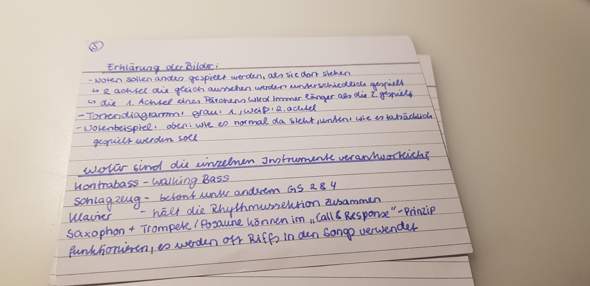 Erklärung der Bilder:
- Noten sollen anders gespielt werden, als sie dort stehen
↳ 2 achtel die gleich aussehen werden unterschiedlich gespielt
↳ die 1. Achtel eines Pärchens wird immer länger als die 2. gespielt
- Tortendiagramm: grau: 1, weiß: 2. achtel
- Notenbeispiel: oben: wie es normal da steht, unten: wie es tatsächlich
gespielt werden soll
Wofür sind die einzelnen Instrumente verantwortlich?
Kontrabass - Walking Bass
Schlagzeug - betont unter anderem 2 & 4
Klavier - hält die Rhythmussektion zusammen
Saxophon + Trompete / Posaune können im „Call & Response" - Prinzip
funktionieren, es werden oft Riffs in den Songs verwendet